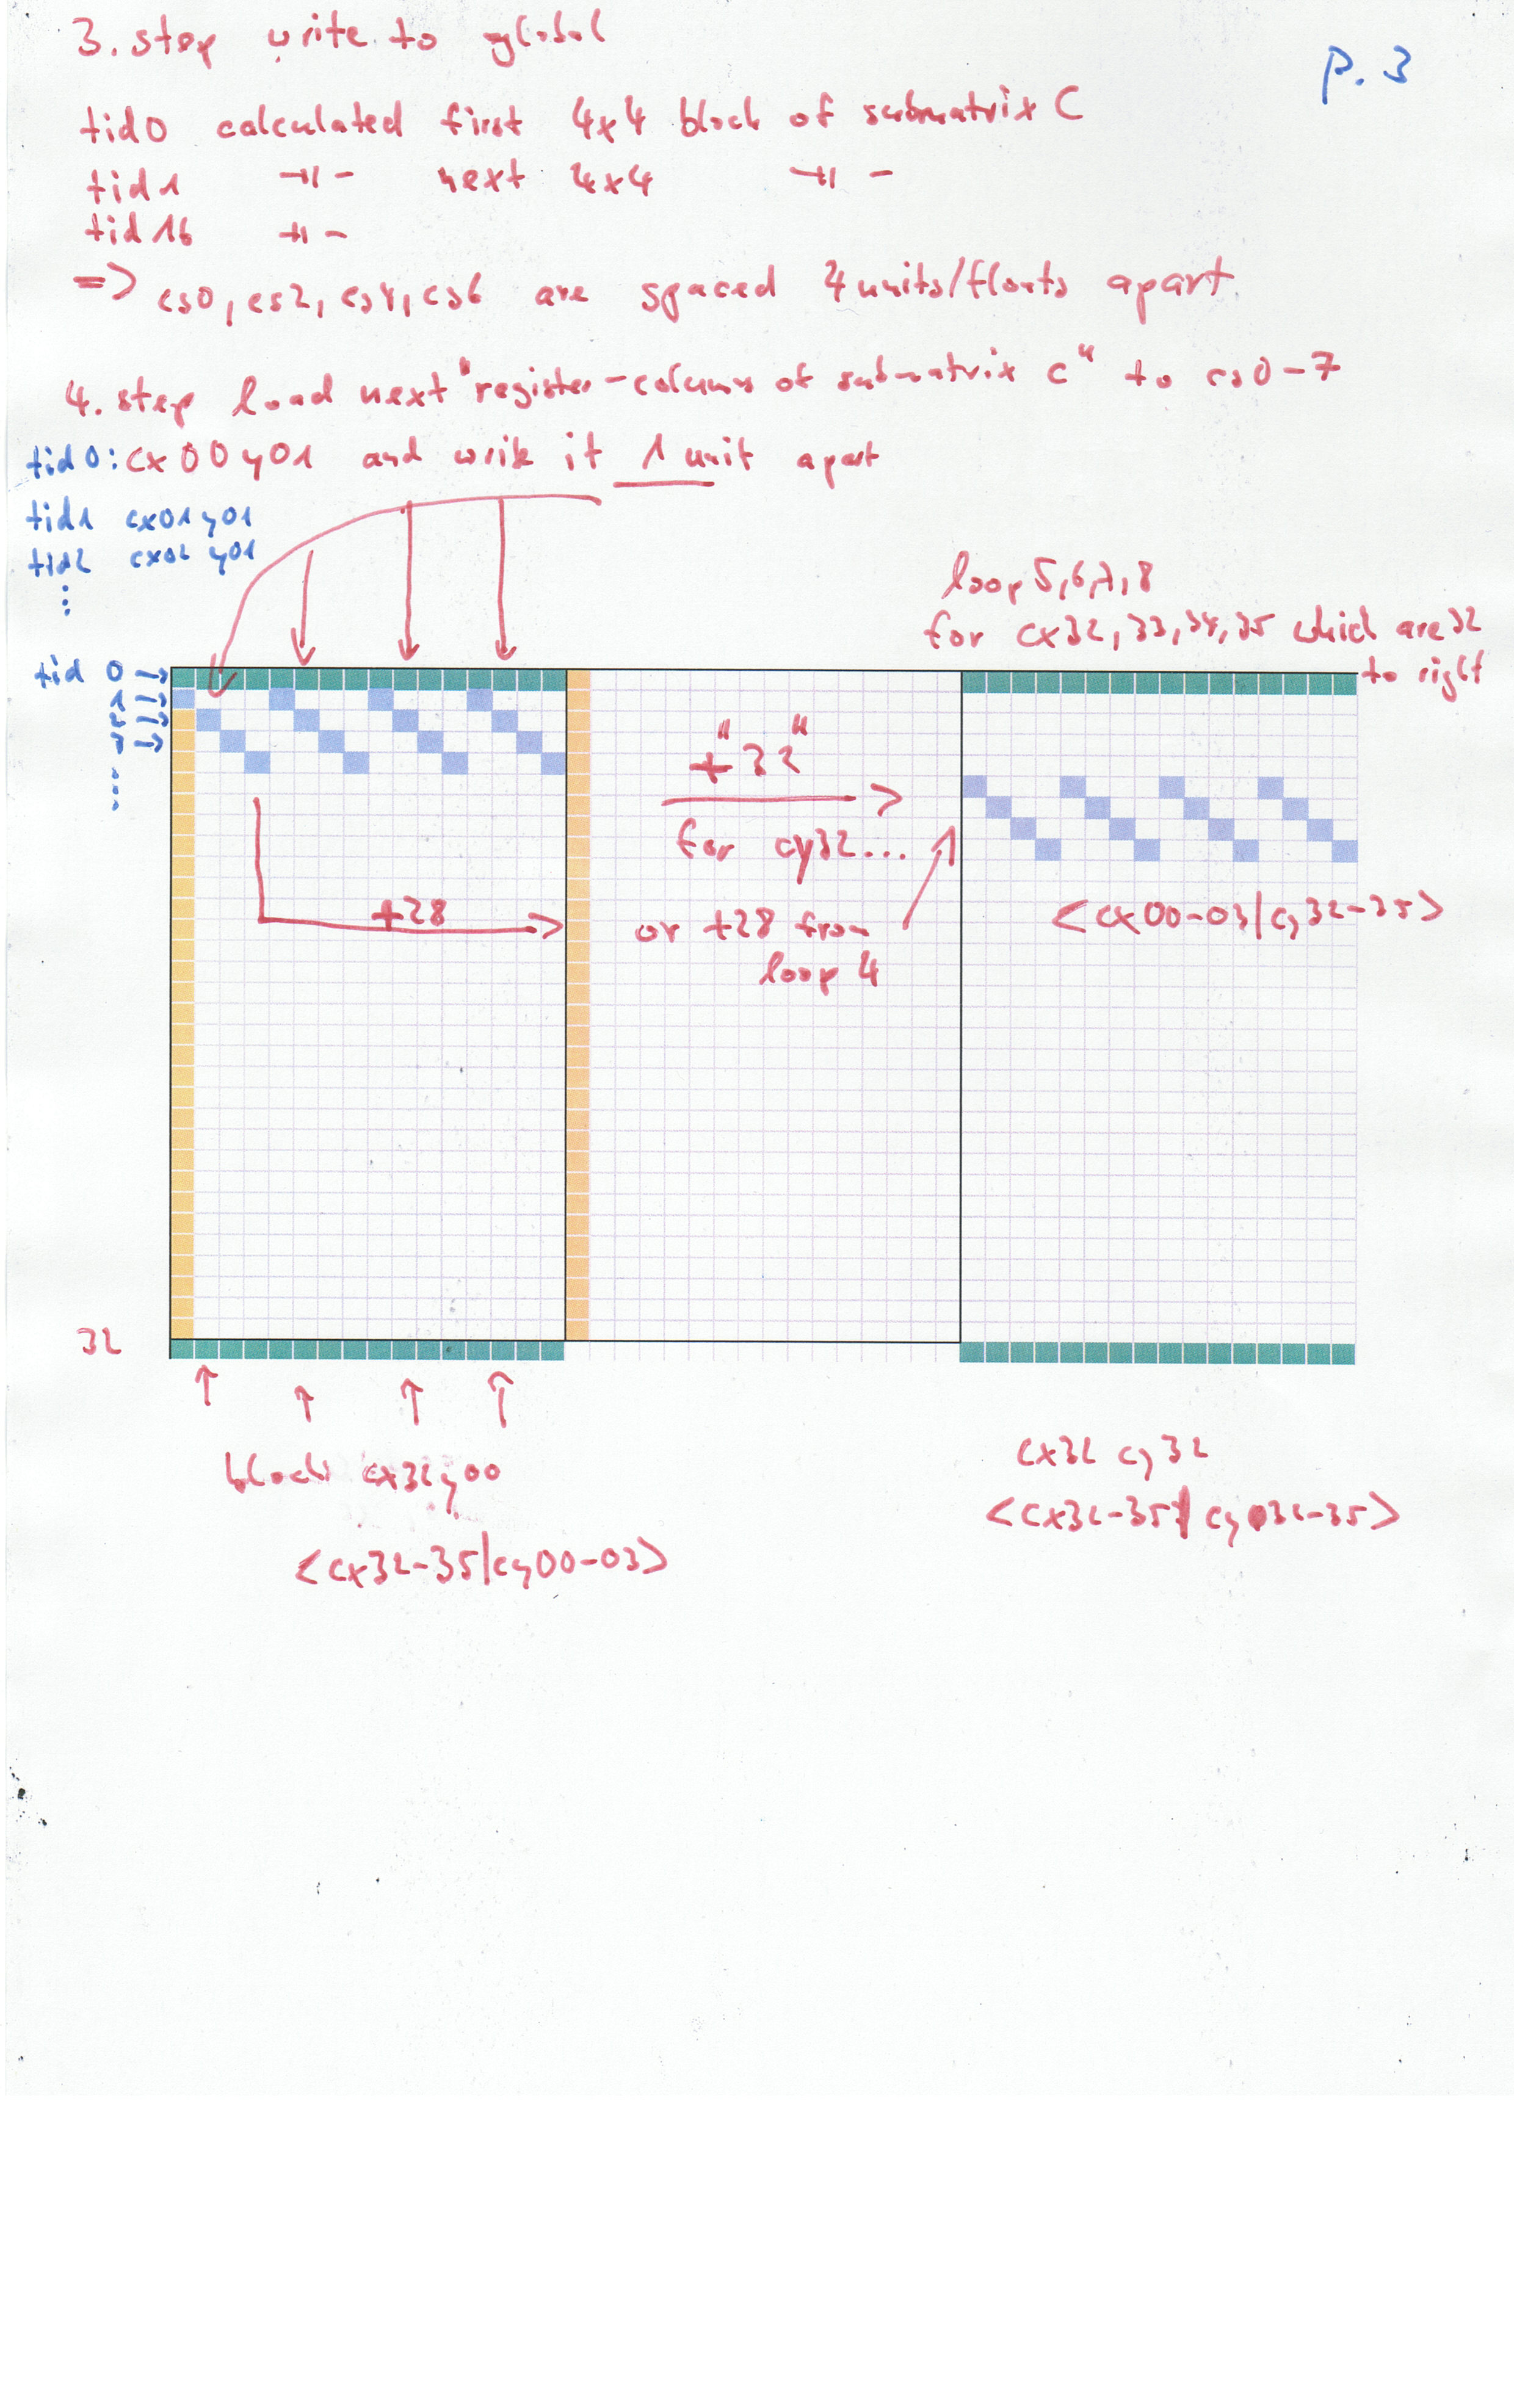 p. 3
3. step write to global
tid0 calculated first 4x4 block of submatrix C
tid1 -||- next 4x4 -||-
tid16 -||-
=> cs0, cs2, cs4, cs6 are spaced 4 units/floats apart
4. step load next "register-column of submatrix c" to cs0-7
tid0: cx00y01 and write it 1 unit apart
tid1 cx01y01
tid2 cx02y01
⋮
loop 5,6,7,8
for cx32, 33, 34, 35 which are 32
to right
tid 0 →
1 →
2 →
3 →
⋮
+"32"
for cy32...
+28
or +28 from
loop 4
<cx00-03|cy32-35>
32
block cx32y00
<cx32-35|cy00-03>
cx32 cy32
<cx32-35|cy32-35>